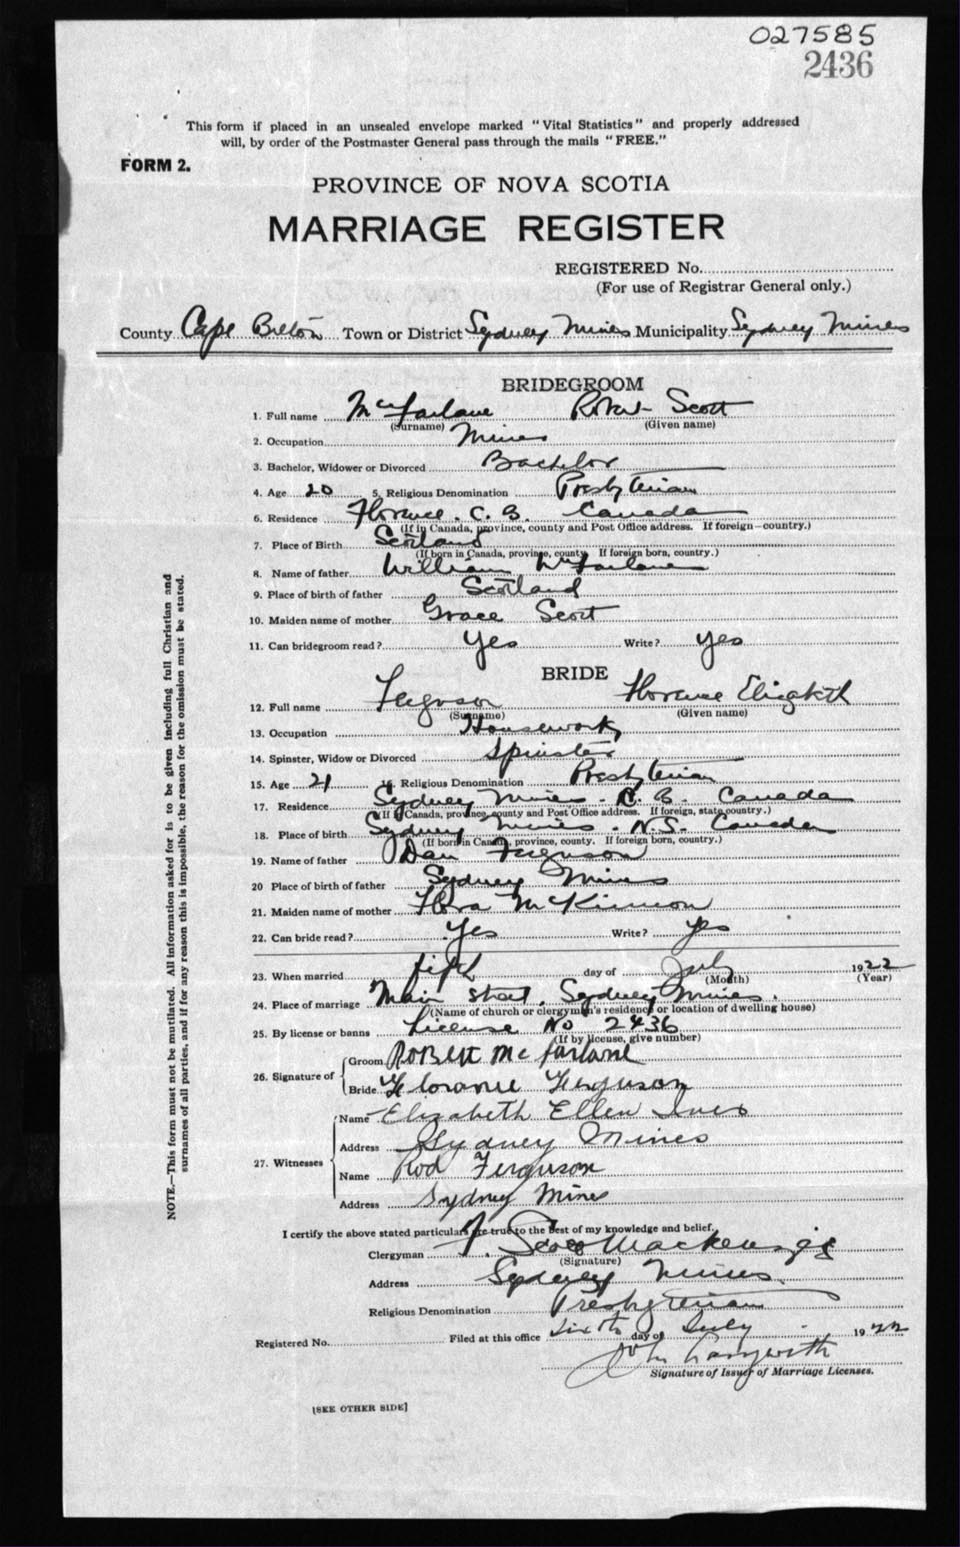 027585
2436
This form if placed in an unsealed envelope marked "Vital Statistics" and properly addressed
will, by order of the Postmaster General pass through the mails "FREE."
FORM 2.
PROVINCE OF NOVA SCOTIA
MARRIAGE REGISTER
REGISTERED No.
(For use of Registrar General only.)
County Cape Breton Town or District Sydney Mines Municipality Sydney Mines
BRIDEGROOM
1. Full name McFarlane Robert Scott
(Surname) (Given name)
2. Occupation Miner
3. Bachelor, Widower or Divorced Bachelor
4. Age 20 5. Religious Denomination Presbyterian
6. Residence Florence. C. B. Canada
(If in Canada, province, county and Post Office address. If foreign—country.)
7. Place of Birth Scotland
(If born in Canada, province, county. If foreign born, country.)
8. Name of father William McFarlane
9. Place of birth of father Scotland
10. Maiden name of mother Grace Scott
11. Can bridegroom read? Yes Write? yes
BRIDE
12. Full name Ferguson Florence Elizabeth
(Surname) (Given name)
13. Occupation Housework
14. Spinster, Widow or Divorced Spinster
15. Age 21 16. Religious Denomination Presbyterian
17. Residence Sydney Mines. C. B. Canada
(If in Canada, province, county and Post Office address. If foreign, state country.)
18. Place of birth Sydney Mines. N.S. Canada
(If born in Canada, province, county. If foreign born, country.)
19. Name of father Dan Ferguson
20 Place of birth of father Sydney Mines
21. Maiden name of mother Flora McKinnon
22. Can bride read? Yes Write? yes
23. When married fifth day of July 1922
(Month) (Year)
24. Place of marriage Main street, Sydney Mines.
(Name of church or clergymen's residence or location of dwelling house)
25. By license or banns License No 2436
(If by license, give number)
26. Signature of Groom Robert McFarlane
Bride Florance Ferguson
27. Witnesses Name Elizabeth Ellen Ives
Address Sydney Mines
Name Rod Ferguson
Address Sydney Mines
I certify the above stated particulars are true to the best of my knowledge and belief.
Clergyman Scott Mackenzie
(Signature)
Address Sydney Mines.
Religious Denomination Presbyterian
Registered No. Filed at this office sixth day of July 1922
John
Signature of Issuer of Marriage Licenses.
[SEE OTHER SIDE]
NOTE.—This form must not be mutilated. All information asked for is to be given including full Christian and
surnames of all parties, and if for any reason this is impossible, the reason for the omission must be stated.